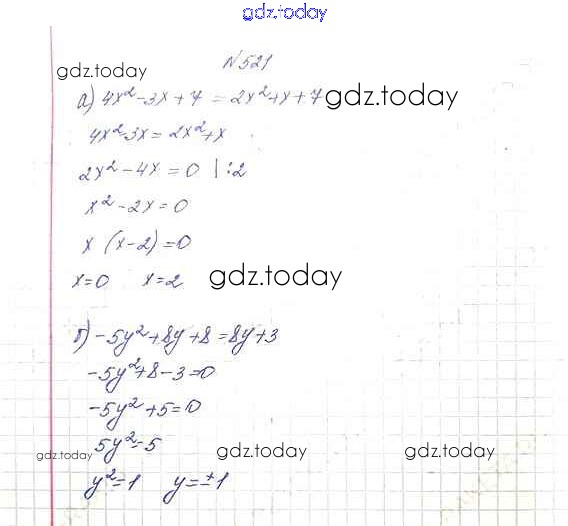 gdz.today
№521
gdz.today
а) 4x²-3x+7 = 2x²+x+7 gdz.today
4x²-3x = 2x²+x
2x²-4x = 0 |:2
x²-2x=0
x (x-2)=0
x=0 x=2 gdz.today
б) -5y²+8y+8=8y+3
-5y²+8-3=0
-5y²+5=0
5y²=5
gdz.today gdz.today gdz.today
y²=1 y=±1